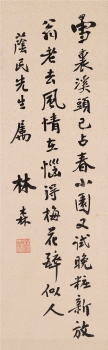 雪裏溪頭已占春小園又試晚粧新放
翁老去風情在惱得梅花醉似人
蔭民先生屬
林森